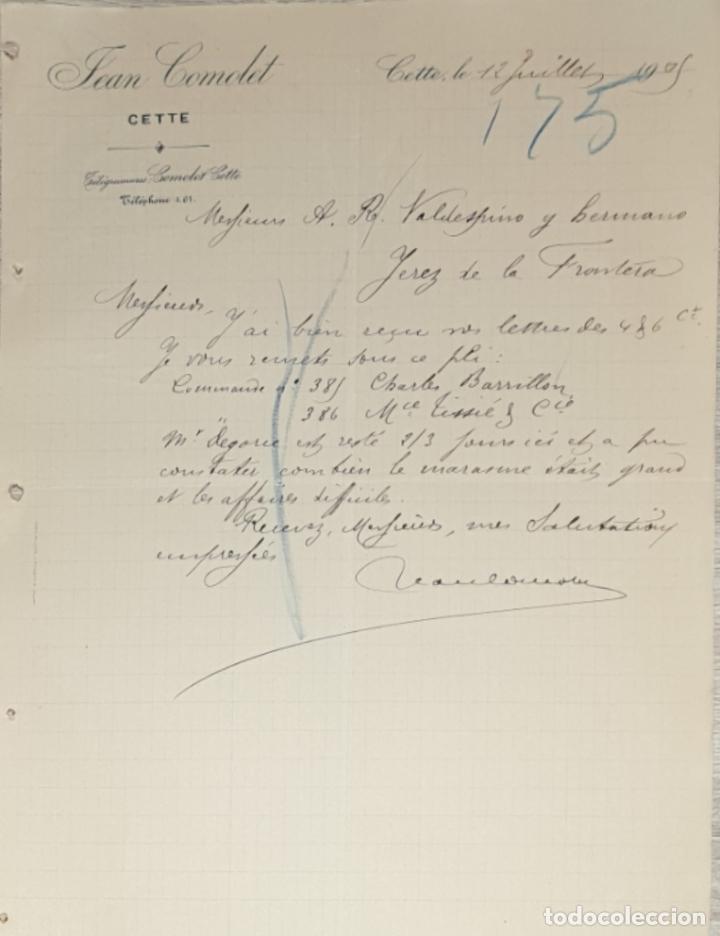 Jean Comolet
CETTE
Télégrammes: Comolet Cette
Téléphone 2.01.
Cette, le 12 Juillet 1905
175
Messieurs A. R. Valdespino y hermano
Jerez de la Frontera
Messieurs,
J'ai bien reçu vos lettres des 4 & 6 Ct.
Je vous remets sous ce pli:
Commande n° 385 Charles Barrillon
" 386 Mce Tissié & Cie
Mr est resté 2/3 jours ici et a pu
constater combien le marasme était grand
et les affaires difficiles.
Recevez, Messieurs, mes Salutations
empressées
Jean Comolet
todocoleccion